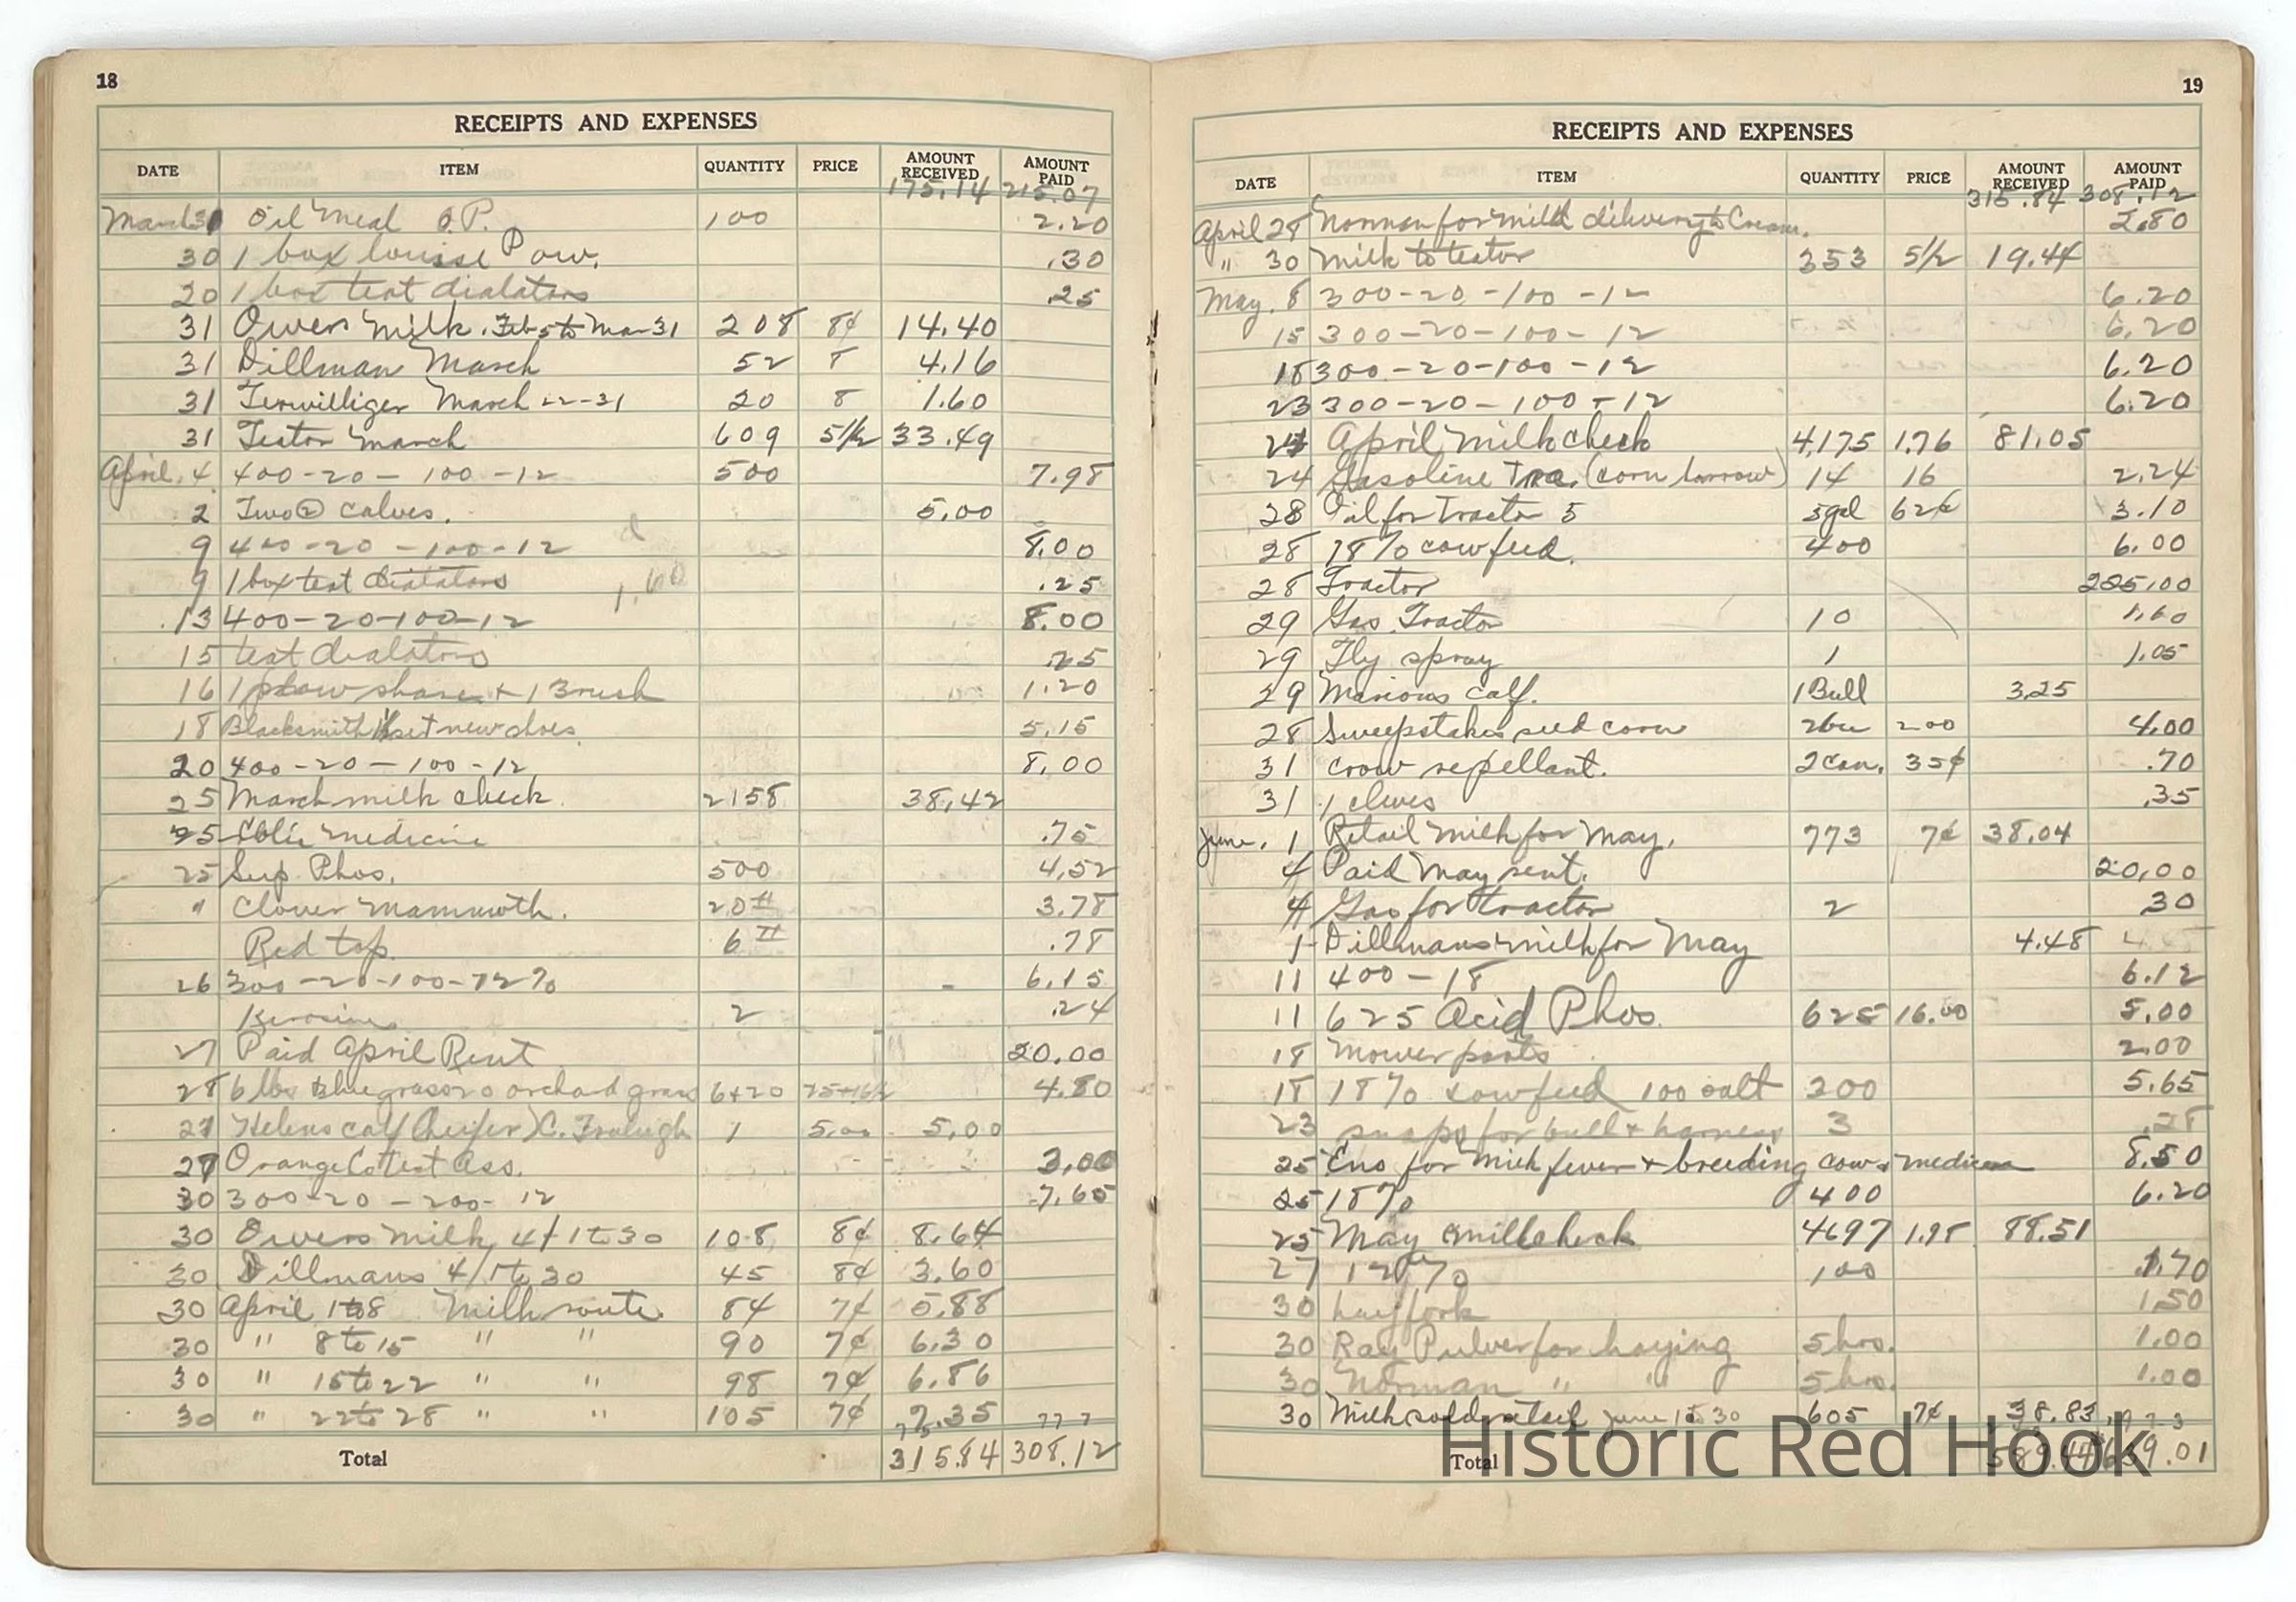 18
RECEIPTS AND EXPENSES
DATE ITEM QUANTITY PRICE AMOUNT RECEIVED AMOUNT PAID
175.14 215.07
March 31 Oil Meal O.P. 100 2.20
30 1 box louise Pow. .30
20 1 box teat dialators .25
31 Owens Milk. Feb 5 to Mar 31 208 8¢ 14.40
31 Dillman March 52 8 4.16
31 Terwilliger March 22-31 20 8 1.60
31 Teator March 609 5½ 33.49
April. 4 400-20-100-12 500 7.98
2 Two ② calves. 5.00
9 400-20-100-12 8.00
9 1 box teat dialators 1.60 .25
13 400-20-100-12 8.00
15 teat dialators .25
16 1 plow share + 1 Brush 1.20
18 Blacksmith 1 set new shoes 5.15
20 400-20-100-12 8.00
25 March milk check 2158 38.42
25 medicine .75
25 Sup. Phos. 500 4.52
" Clover Mammoth. 20# 3.78
Red top 6# .78
26 300-20-100-12% 6.15
Kerosine 2 .24
27 Paid April Rent 20.00
28 6 lbs Bluegrass 20 orchard grass 6+20 25+16½ 4.80
27 Helens calf (heifer) C. Fraleigh 1 5.00 5.00
27 Orange Co test Ass. 3.00
30 300-20-200-12 7.65
30 Owens Milk 4/1 to 30 108 8¢ 8.64
30 Dillmans 4/1 to 30 45 8¢ 3.60
30 April 1 to 8 Milk route 84 7¢ 5.88
30 " 8 to 15 " " 90 7¢ 6.30
30 " 15 to 22 " " 98 7¢ 6.86
30 " 22 to 28 " " 105 7¢ 7.35
Total 315.84 308.12
19
RECEIPTS AND EXPENSES
DATE ITEM QUANTITY PRICE AMOUNT RECEIVED AMOUNT PAID
315.84 308.12
April 28 Norman for milk delivery to Cream. 2.80
" 30 Milk to teator 353 5½ 19.44
May. 8 300-20-100-12 6.20
15 300-20-100-12 6.20
18 300-20-100-12 6.20
23 300-20-100-12 6.20
24 April Milk check 4,175 1.76 81.05
24 Gasoline Tra. (corn harrow) 14 16 2.24
28 Oil for tractor 5 5 gal 62¢ 3.10
28 18% cow feed. 400 6.00
28 Tractor 225.00
29 Gas. Tractor 10 1.60
29 Fly spray 1 1.05
29 Marions calf. 1 Bull 3.25
28 Sweepstakes seed corn 2 bu 2.00 4.00
31 crow repellant. 2 can. 35¢ .70
31 1 35
June. 1 Retail Milk for May. 773 7¢ 38.04
4 Paid May rent. 20.00
4 Gas for tractor 2 30
1 Dillmans milk for May 4.48
11 400-18 6.12
11 625 Acid Phos. 625 16.00 5.00
18 Mower parts 2.00
18 18% cow feed 100 salt 200 5.65
23 snaps for bull + harness 3 .28
25 Eno for Milk fever + breeding cow + medicine 8.50
25 18% 400 6.20
25 May Milk check 4697 1.98 88.51
27 12% 100 1.70
30 hay fork 1.50
30 Ray Pulver for haying 5 hrs. 1.00
30 Norman " " 5 hrs. 1.00
30 Milk sold retail June 1 to 30 605 7¢ 38.83
Total 589.44 639.01
Historic Red Hook